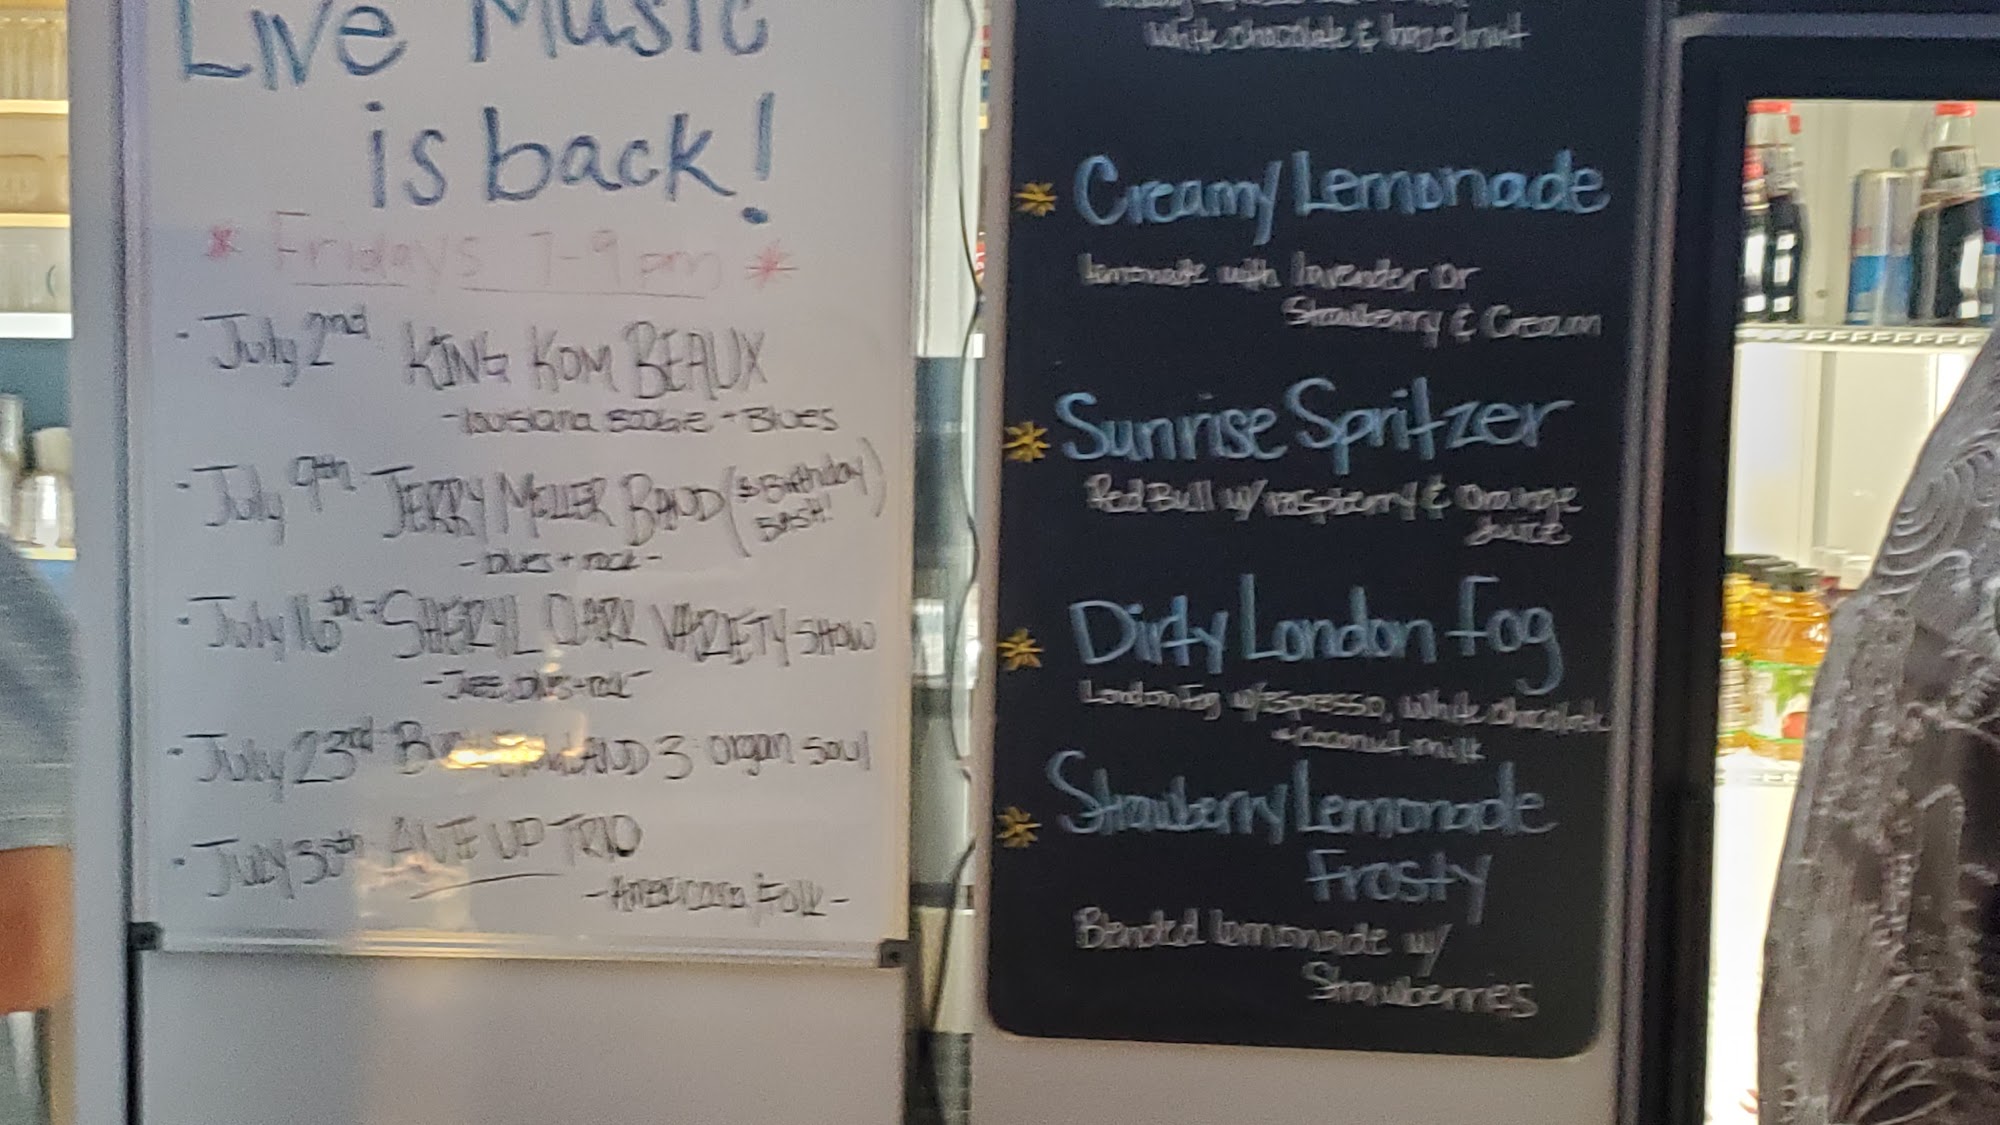 Live Music
is back!
* Fridays 7-9pm *
· July 2nd KING KOM BEAUX
-Louisiana Boogie + Blues
- July 9th JERRY MILLER BAND (& Birthday
BASH!)
- Blues + rock -
· July 16th - SHERYL CLARK VARIETY SHOW
- Blues + rock -
· July 23rd 3 organ soul
· July 30th UP TRIO
- Americana / Folk -
White chocolate & hazelnut
Creamy Lemonade
lemonade with lavender or
Strawberry & Cream
Sunrise Spritzer
Red Bull w/ raspberry & orange
Juice
Dirty London Fog
London Fog w/ espresso, white chocolate
+ coconut milk
Strawberry Lemonade
Frosty
Blended lemonade w/
Strawberries